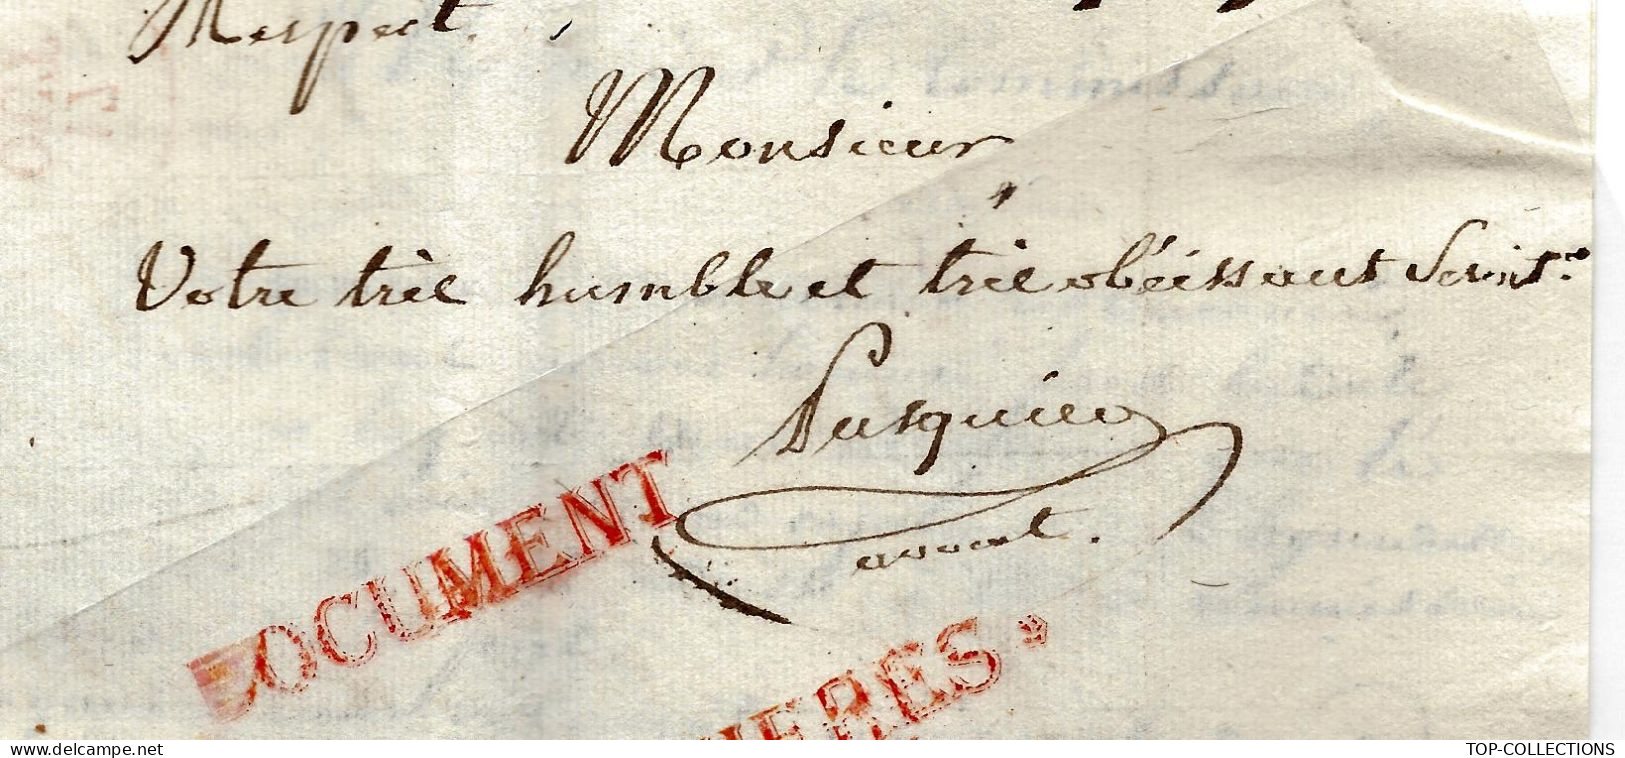 Respect,
Monsieur
Votre très humble et très obéissant Servt.r
Pasquier
avocat.
DOCUMENT
delcampe.net
TOP-COLLECTIONS